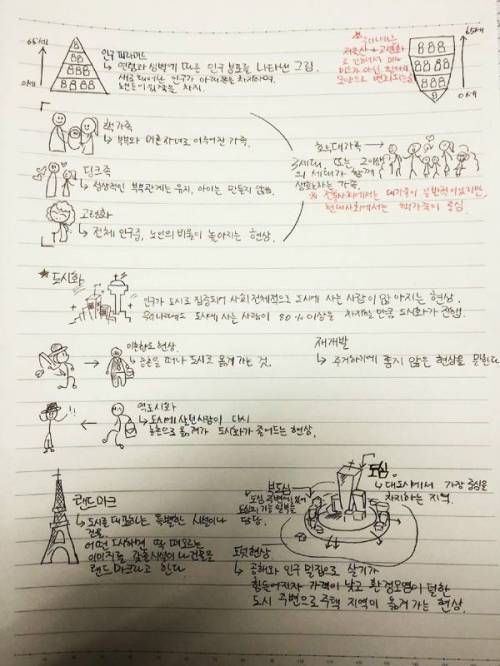 65세
0세
인구 피라미드
↳ 연령과 성별에 따른 인구 분포를 나타낸 그림.
새로 태어난 인구가 아래쪽을 차지하며,
노인들이 위쪽을 차지.
저출산 + 고령화
65세
0세
핵가족
↳ 부부와 미혼 자녀로 이루어진 가족.
딩크족
↳ 정상적인 부부관계는 유지, 아이는 만들지 않음.
고령화
↳ 전체 인구중, 노인의 비율이 높아지는 현상.
확대가족
3세대, 또는 그이상
의 세대가 함께
가족.
현대사회에서는 핵가족이 중심
★ 도시화
인구가 도시로 집중되어 사회 전체적으로 도시에 사는 사람이 많아지는 현상.
우리나라에도 도시에 사는 사람이 80%이상을 차지할 만큼 도시화가 진행.
이촌향도현상.
↳ 농촌을 떠나 도시로 옮겨 가는 것.
재개발
↳ 주거하기에 좋지 않은 현상을
역도시화
↳ 도시에 살던 사람이 다시
농촌으로 옮겨가 도시화가 줄어드는 현상.
랜드마크
↳ 도시를 대표하는 특별한 시설이나
건물.
어떤 도시하면 딱 떠오르는
이미지를 갖춘 시설이나 건물은
랜드마크라고 한다
도심.
↳ 대도시에서 가장 중심을
차지하는 지역.
부도심
도심 주변에 있어
도심의 기능 일부를
담당.
도넛현상
↳ 공해와 인구 밀집으로 살기가
힘들어지자 가격이 낮고 환경오염이 덜한
도시 주변으로 주택 지역이 옮겨 가는 현상.